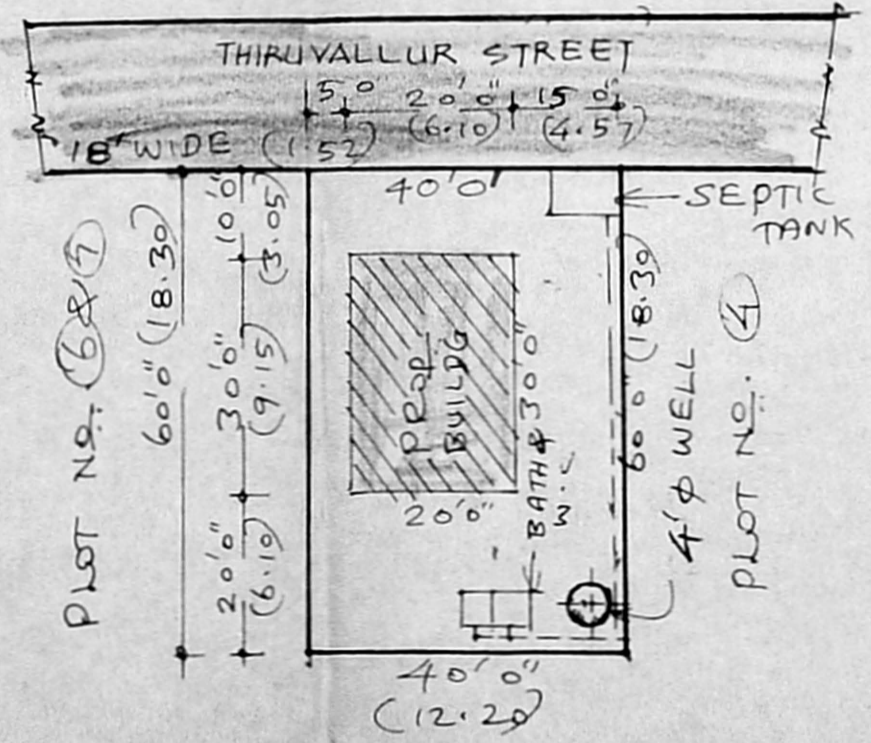 THIRUVALLUR STREET
5 0
20'0"
15 0"
18' WIDE
(1.52)
(6.10)
(4.57)
40'0"
SEPTIC
TANK
10'0"
(3.05)
60'0" (18.30)
30'0"
(9.15)
20'0"
(6.10)
PLOT NO.
PROP
BUILDG
30'0"
20'0"
BATH &
60'0" (18.30)
4'φ WELL
PLOT NO. 4
40'0"
(12.20)